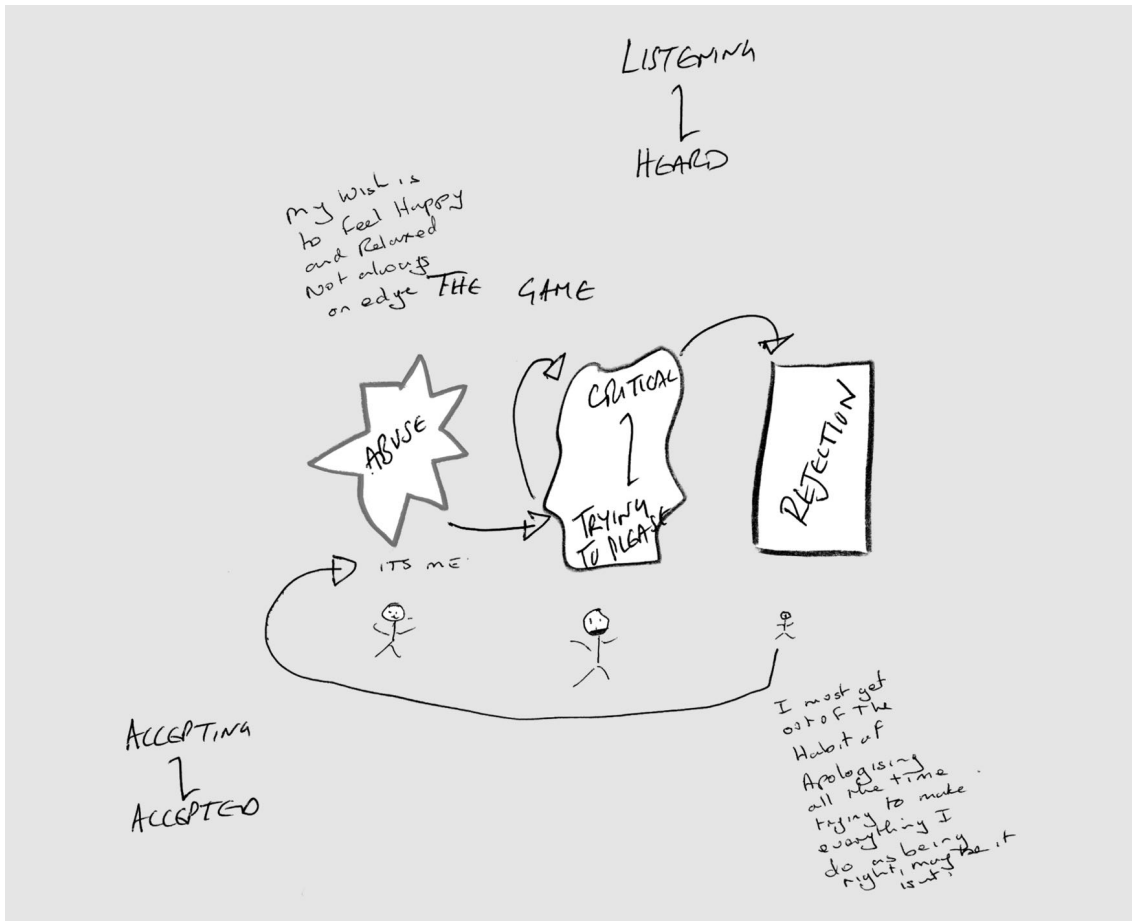 LISTENING
HEARD
my wish is
to feel Happy
and Relaxed
Not always
on edge
THE GAME
ABUSE
CRITICAL
TRYING
TO PLEASE
REJECTION
ITS ME.
ACCEPTING
ACCEPTED
I most get
out of The
Habit of
Apologising
all the time
trying to make
everything I
do as being
right, maybe it
isnt.